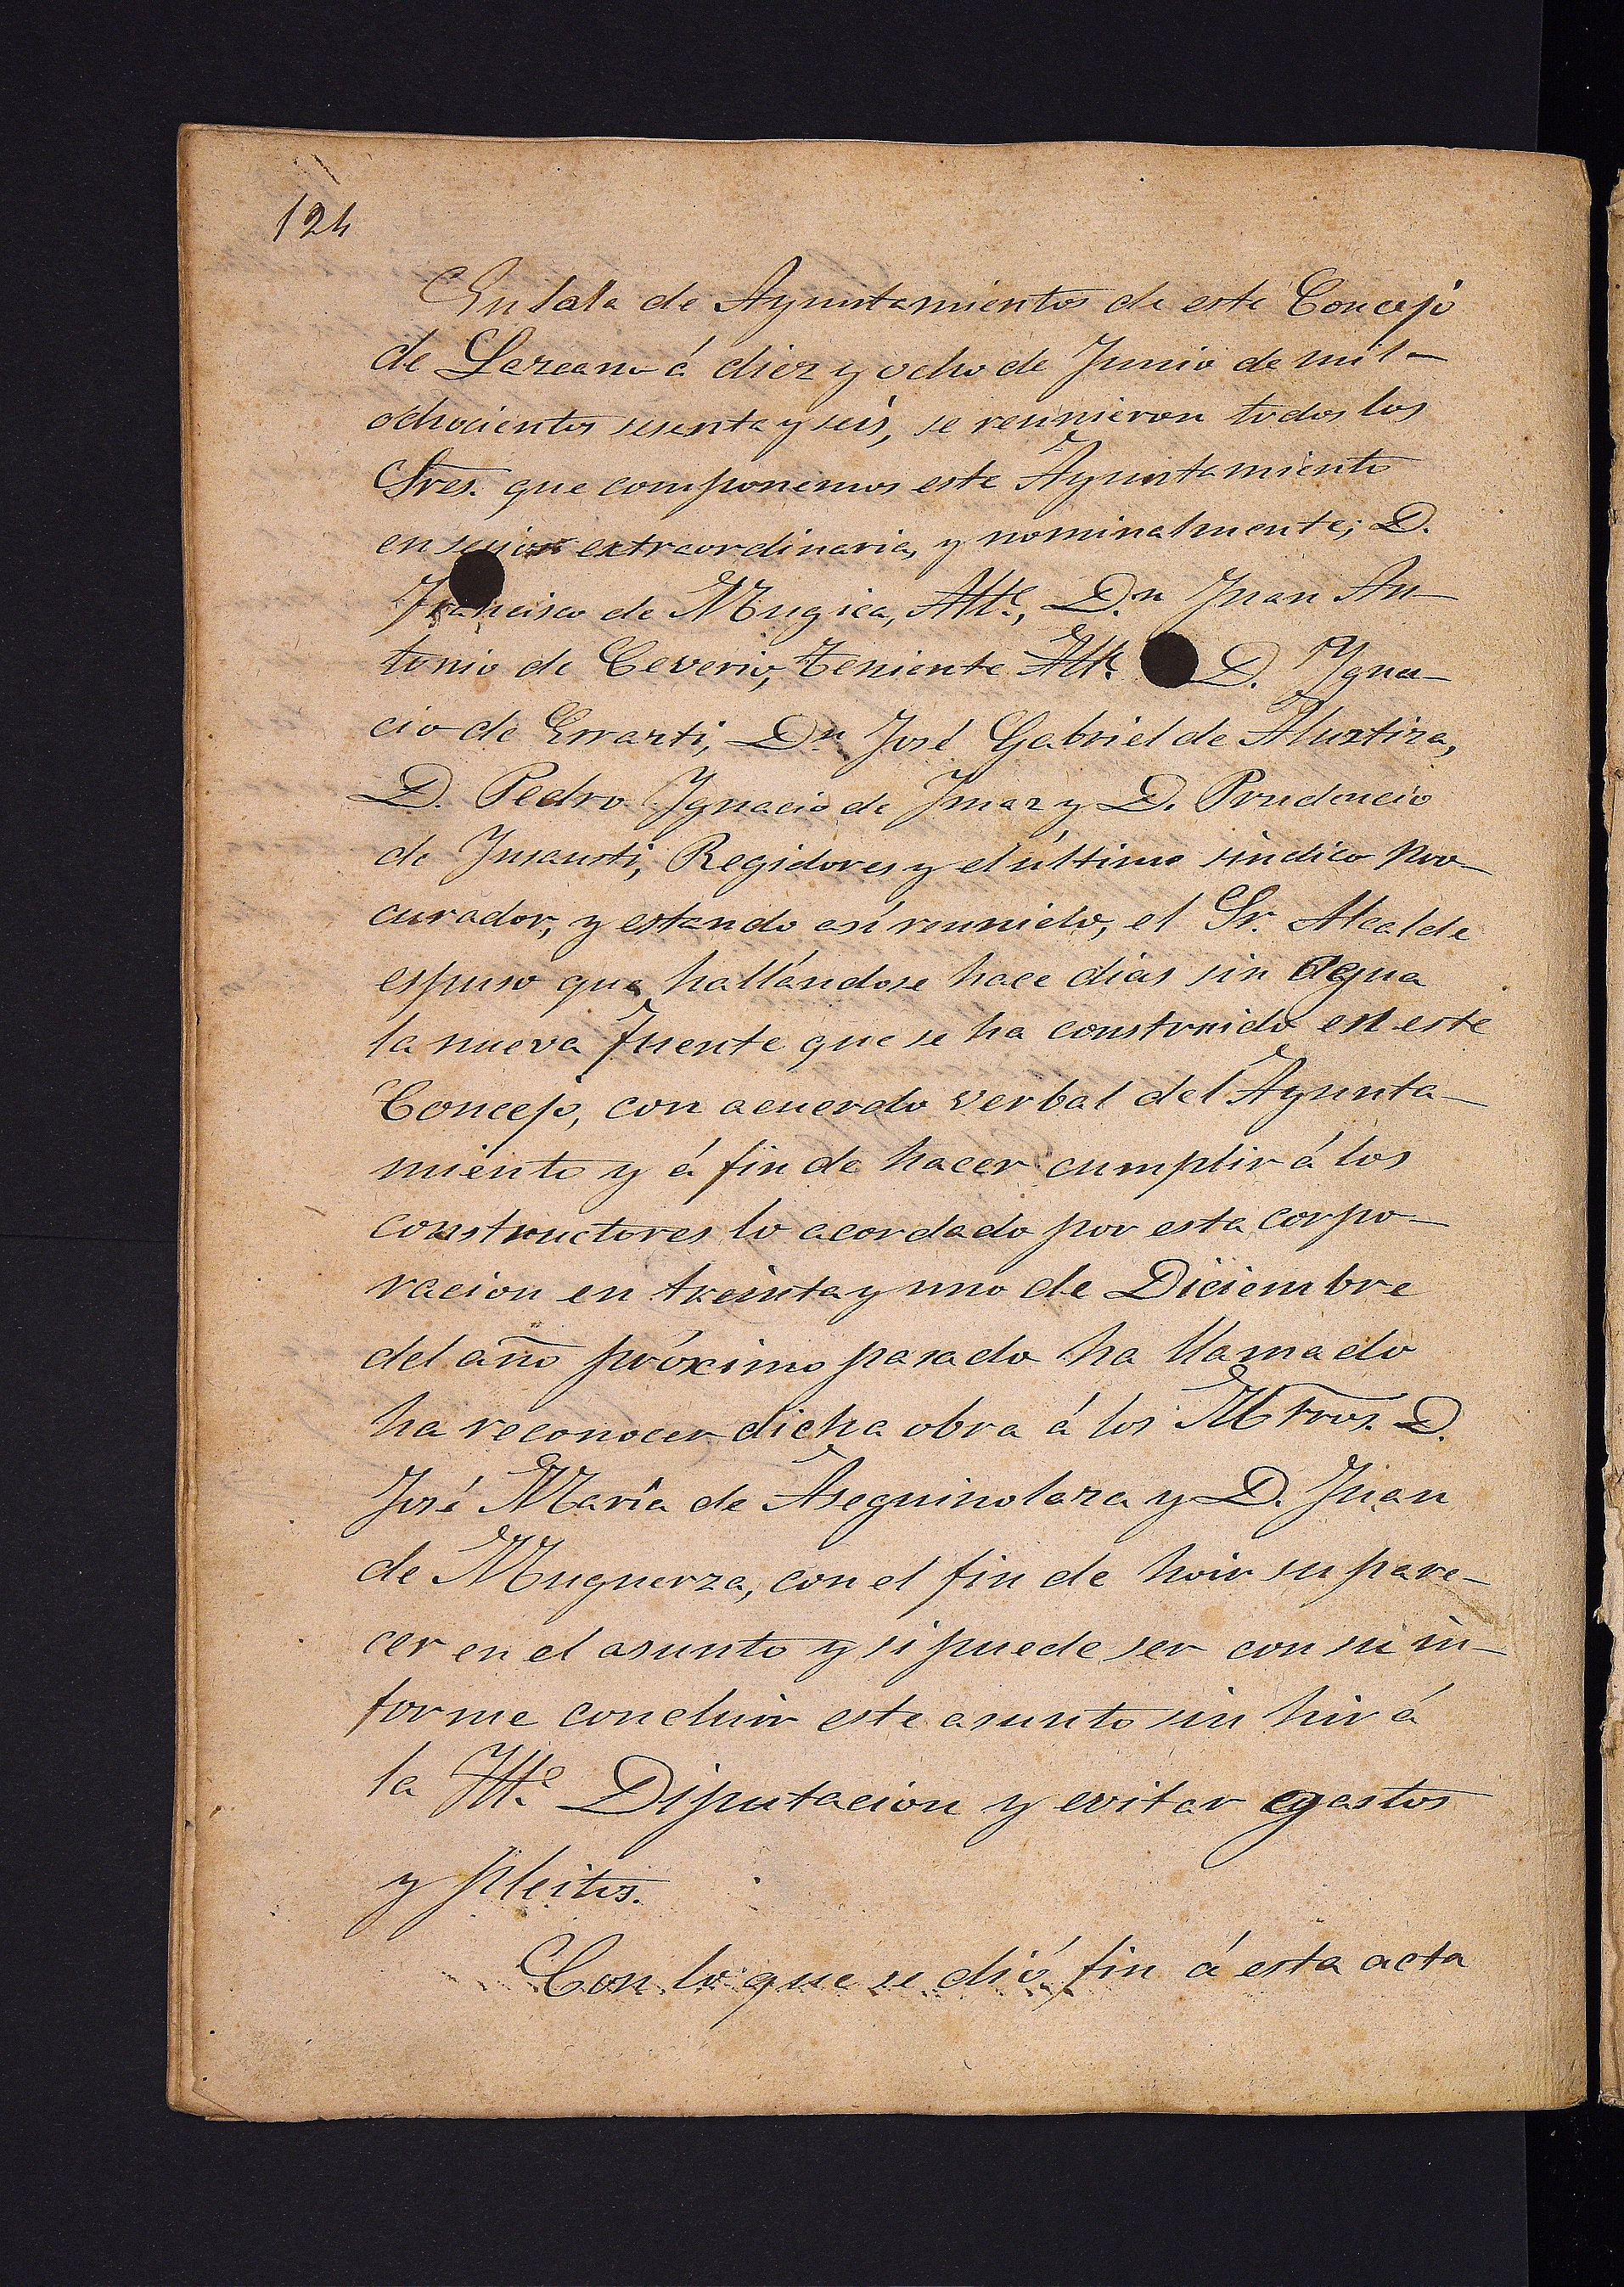 124
En sala de Ayuntamientos de este Concejo
de Lazcano á diez y ocho de Junio de mil
ochocientos sesenta y seis, se reunieron todos los
Sres. que componemos este Ayuntamiento
en sesion extraordinaria, y nominalmente; D.
Francisco de Mugica, Alle., D.n Juan An-
tonio de Ceverio, Teniente Alle. D. Ygna-
cio de Errazti, Dn José Gabriel de Aluztiza,
D. Pedro Ygnacio de Imaz y D. Prudencio
de Insausti, Regidores y el último síndico Pro-
curador, y estando así reunido, el Sr. Alcalde
espuso que hallándose hace dias sin agua
la nueva fuente que se ha construido en este
Concejo, con acuerdo verbal del Ayunta-
miento y á fin de hacer cumplir á los
constructores lo acordado por esta corpo-
racion en treinta y uno de Diciembre
del año próximo pasado ha llamado
ha reconocer dicha obra á los Mtros. D.
José María de Aseguinolaza y D. Juan
de Muguerza, con el fin de hoir su pare-
cer en el asunto y si puede ser con su in-
forme concluir este asunto sin hir á
la Ille. Diputacion y evitar gastos
y pleitos.
Con lo que se dió fin á esta acta